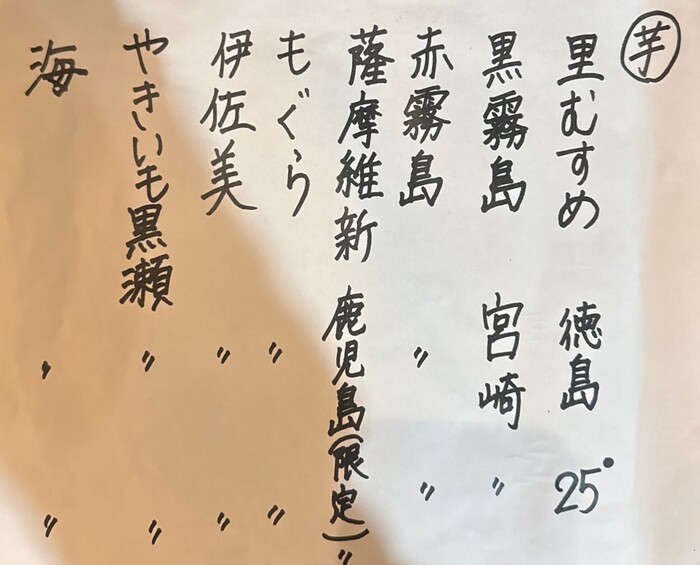 芋
里むすめ 徳島 25°
黒霧島 宮崎 〃
赤霧島 〃 〃
薩摩維新 鹿児島(限定) 〃
もぐら 〃 〃
伊佐美 〃 〃
やきいも黒瀬 〃 〃
海 〃 〃